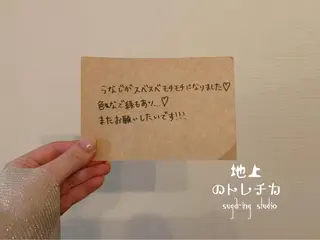 うなじがスベスベモチモチになりました♡
色々なご縁もあり...♡
またお願いしたいです!!!
地上
のトレチカ
sugaring studio